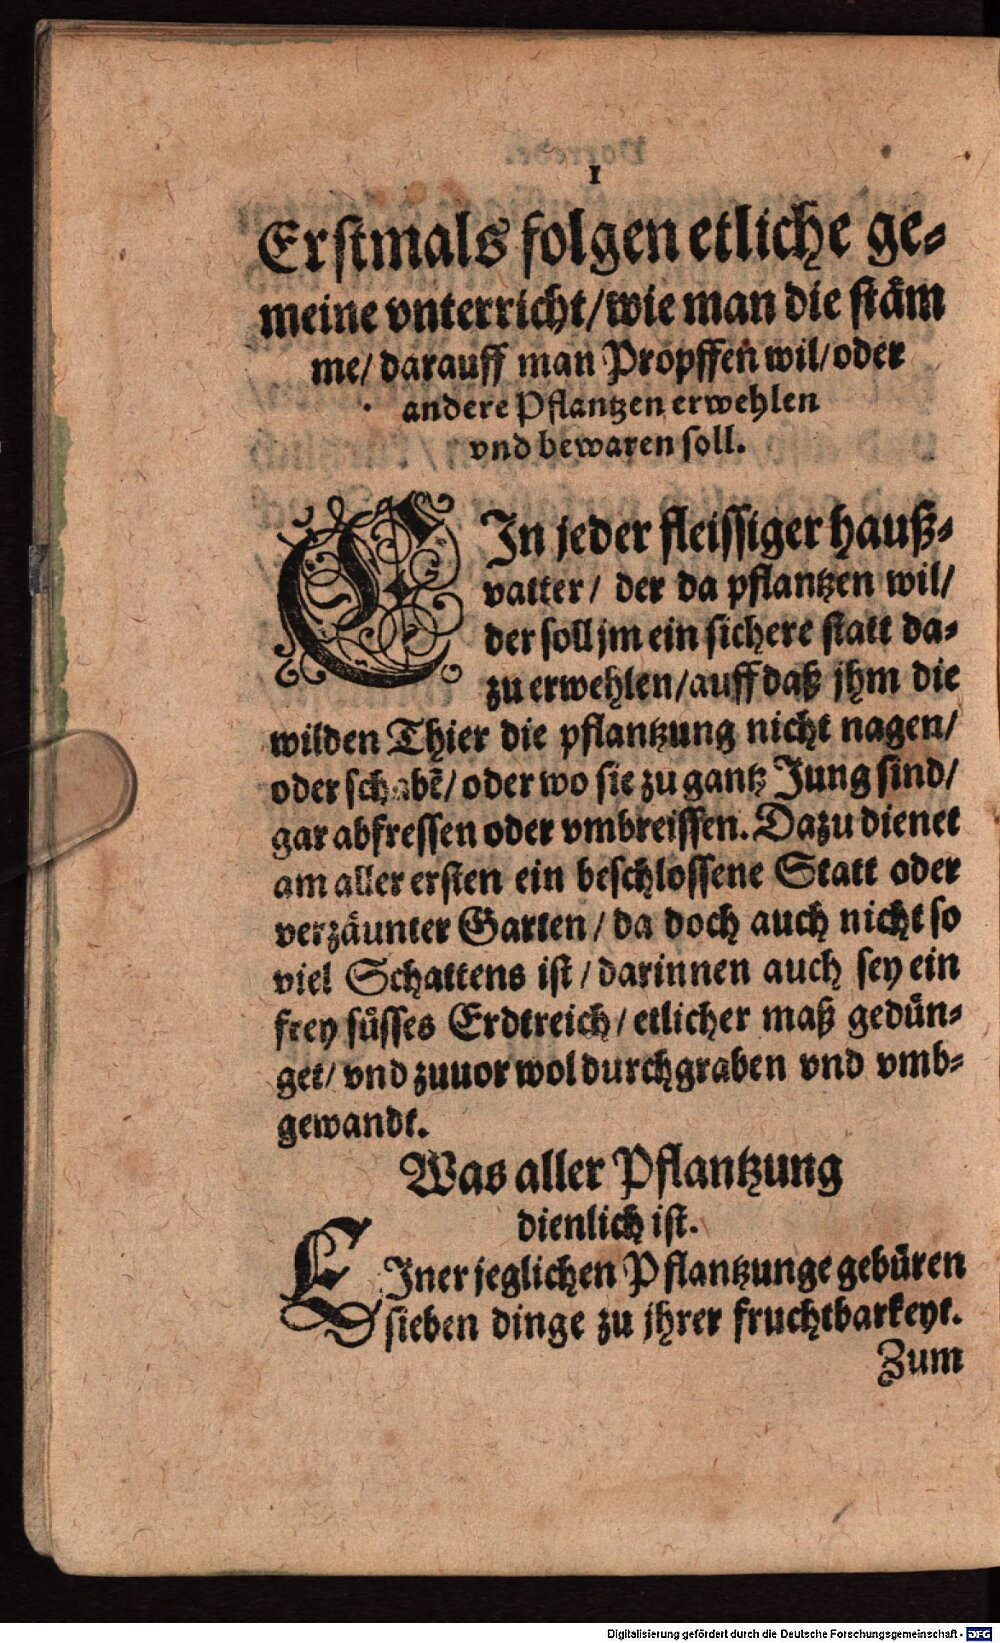 1
Erstmals folgen etliche ge-
meine vnterricht/wie man die stäm
me/ darauff man Propffen wil/oder
andere Pflantzen erwehlen
vnd bewaren soll.
EIn jeder fleissiger hauß-
vatter/ der da pflantzen wil/
der soll jm ein sichere statt da-
zu erwehlen/auff daß jhm die
wilden Thier die pflantzung nicht nagen/
oder schabẽ/ oder wo sie zu gantz Jung sind/
gar abfressen oder vmbreissen. Dazu dienet
am aller ersten ein beschlossene Statt oder
verzäunter Garten/ da doch auch nicht so
viel Schattens ist/ darinnen auch sey ein
frey süsses Erdtreich/ etlicher maß gedün-
get/ vnd zuuor wol durchgraben vnd vmb-
gewandt.
Was aller Pflantzung
dienlich ist.
EIner jeglichen Pflantzunge gebüren
sieben dinge zu jhrer fruchtbarkeyt.
Zum
Digitalisierung gefördert durch die Deutsche Forschungsgemeinschaft - DFG